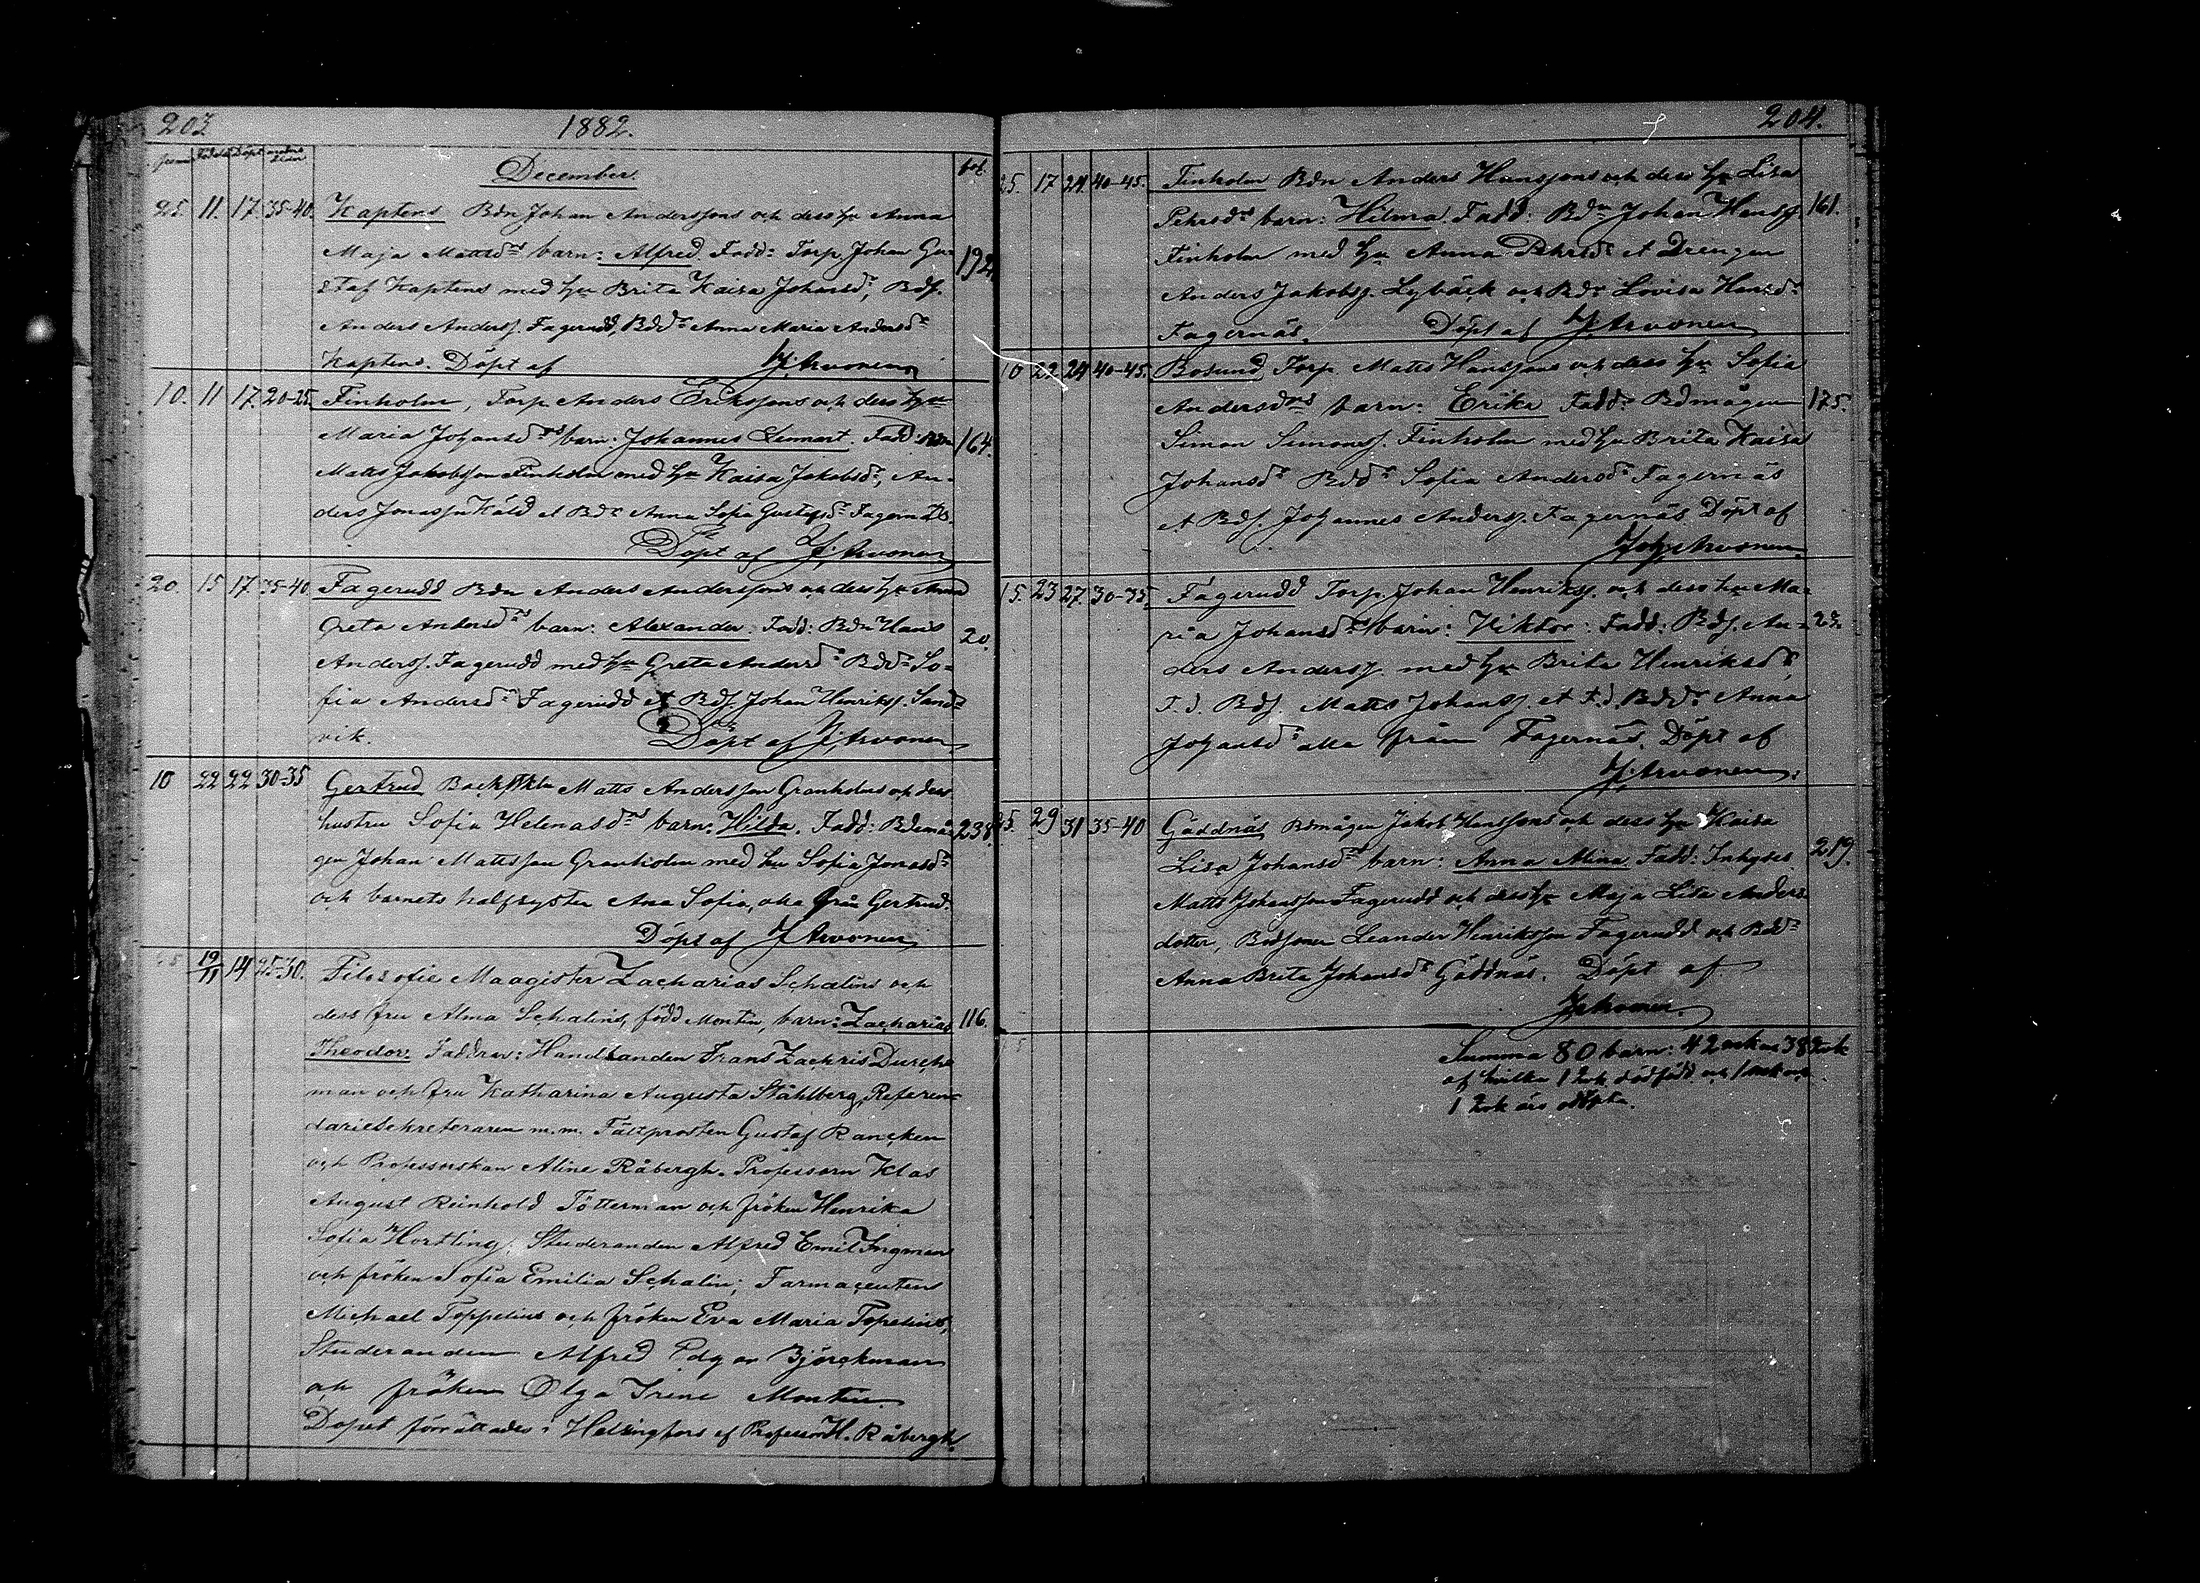 203
1882.
December.
fol.
25. 11. 17. 35-40. Kaptens Bdn Johan Anderssons och dess hu Anna
Maja Mattsdrs barn: Alfred. Fadd: Torp. Johan Gu-
staf Kaptens med hu Brita Kaisa Johansdr, Bds. 192.
Anders Anderss. Fagerudd, Bddr Anna Maria Andersdr
Kaptens. Döpt af J. Arvonen
10. 11 17. 20-25. Finholm, Torp. Anders Erikssons och dess hu
Maria Johansdrs barn: Johannes Lennart. Fadd: Bdn 164.
Matts Jakobsson Finholm med hu Kaisa Jakobsdr, An-
ders Jonasson Käld et Bdr Anna Sofia Gustafsdr Fagernäs.
Döpt af J. Arvonen
20. 15 17. 35-40. Fagerudd Bdn Anders Anderssons och dess hu Anna
Greta Andersdrs barn: Alexander. Fadd: Bdn Hans 20.
Anderss. Fagerudd med hu Greta Andersdr Bddr So-
fia Andersdr Fagerudd et Bds. Johan Henrikss. Sand-
vik. Döpt af J. Arvonen
10 22 22 30-35 Gertrud Matts Andersson Granholms och dess
hustru Sofia Helenasdrs barn: Hilda. Fadd: Bdmå- 238.
gen Johan Mattsson Granholm med hu Sofia Jonasdr
och barnets halfsyster Ana Sofia, alla från Gertrud.
Döpt af J Arvonen
19/11 14 25-30. Filosofie Maagister Zacharias Schalins och
dess fru Alma Schalins, född Montin, barn: Zacharias 116.
Theodor. Faddrar: Handlanden Frans Zachris Durch-
man och fru Katharina Augusta Ståhlberg, Referen-
dariesekreteraren m.m. Fältprosten Gustaf Rancken
och Professorskan Aline Råbergh. Professorn Klas
August Reinhold Tötterman och fröken Henrika
Sofia Hortling; Studeranden Alfred Emil Ingman
och fröken Sofia Emilia Schalin; Farmaceuten
Michael Toppelius och fröken Eva Maria Topelius,
Studeranden Alfred Edgar Björckman
och fröken Olga Irene Montin.
Dopet förrättades i Helsingfors af Professor H. Råbergh.
204.
25. 17 24. 40-45. Finholm Bdn Anders Hanssons och dess hu Lisa
Pehrsdrs barn: Hilma. Fadd: Bdn Johan Hanss. 161.
Finholm med hu Anna Pehrsdr et Drengen
Anders Jakobss. Lybäck och Bdr Lovisa Hansdr
Fagernäs. Döpt af J. Arvonen
10 22. 24 40-45. Bosund, Torp. Matts Hanssons och dess hu Sofia
Andersdrs barn: Erika Fadd: Bdmågen 175.
Simon Simonss. Finholm med hu Brita Kaisa
Johansdr Bddr Sofia Andersdr Fagernäs
et Bds. Johannes Anderss. Fagernäs Döpt af
Joh. Arvonen.
15. 23 27. 30-35. Fagerudd Torp. Johan Henrikss. och dess hu Ma-
ria Johansdrs barn: Viktor. Fadd: Bds. An- 23.
ders Anderss. med hu Brita Henriksdr,
T.d. Bds. Matts Johanss. et t.d. Bddr Anna
Johansdr alla från Fagernäs. Döpt af
J. Arvonen.
25. 29 31 35-40 Gäddnäs Bdmågen Jakob Hanssons och dess hu Kaisa
Lisa Johansdrs barn: Anna Alina Fadd: Inhyses 219.
Matts Johansson Fagerudd och dess hu Maja Lisa Anders-
dotter, Bdsonen Leander Henriksson Fagerudd och Bddr
Anna Brita Johansdr Gäddnäs. Döpt af
J. Arvonen.
Summa 80 barn: 42 mk och 38 qvk
af hvilka 1 qvk dödfödd och 1 mk och
1 qvk äro odöpta.